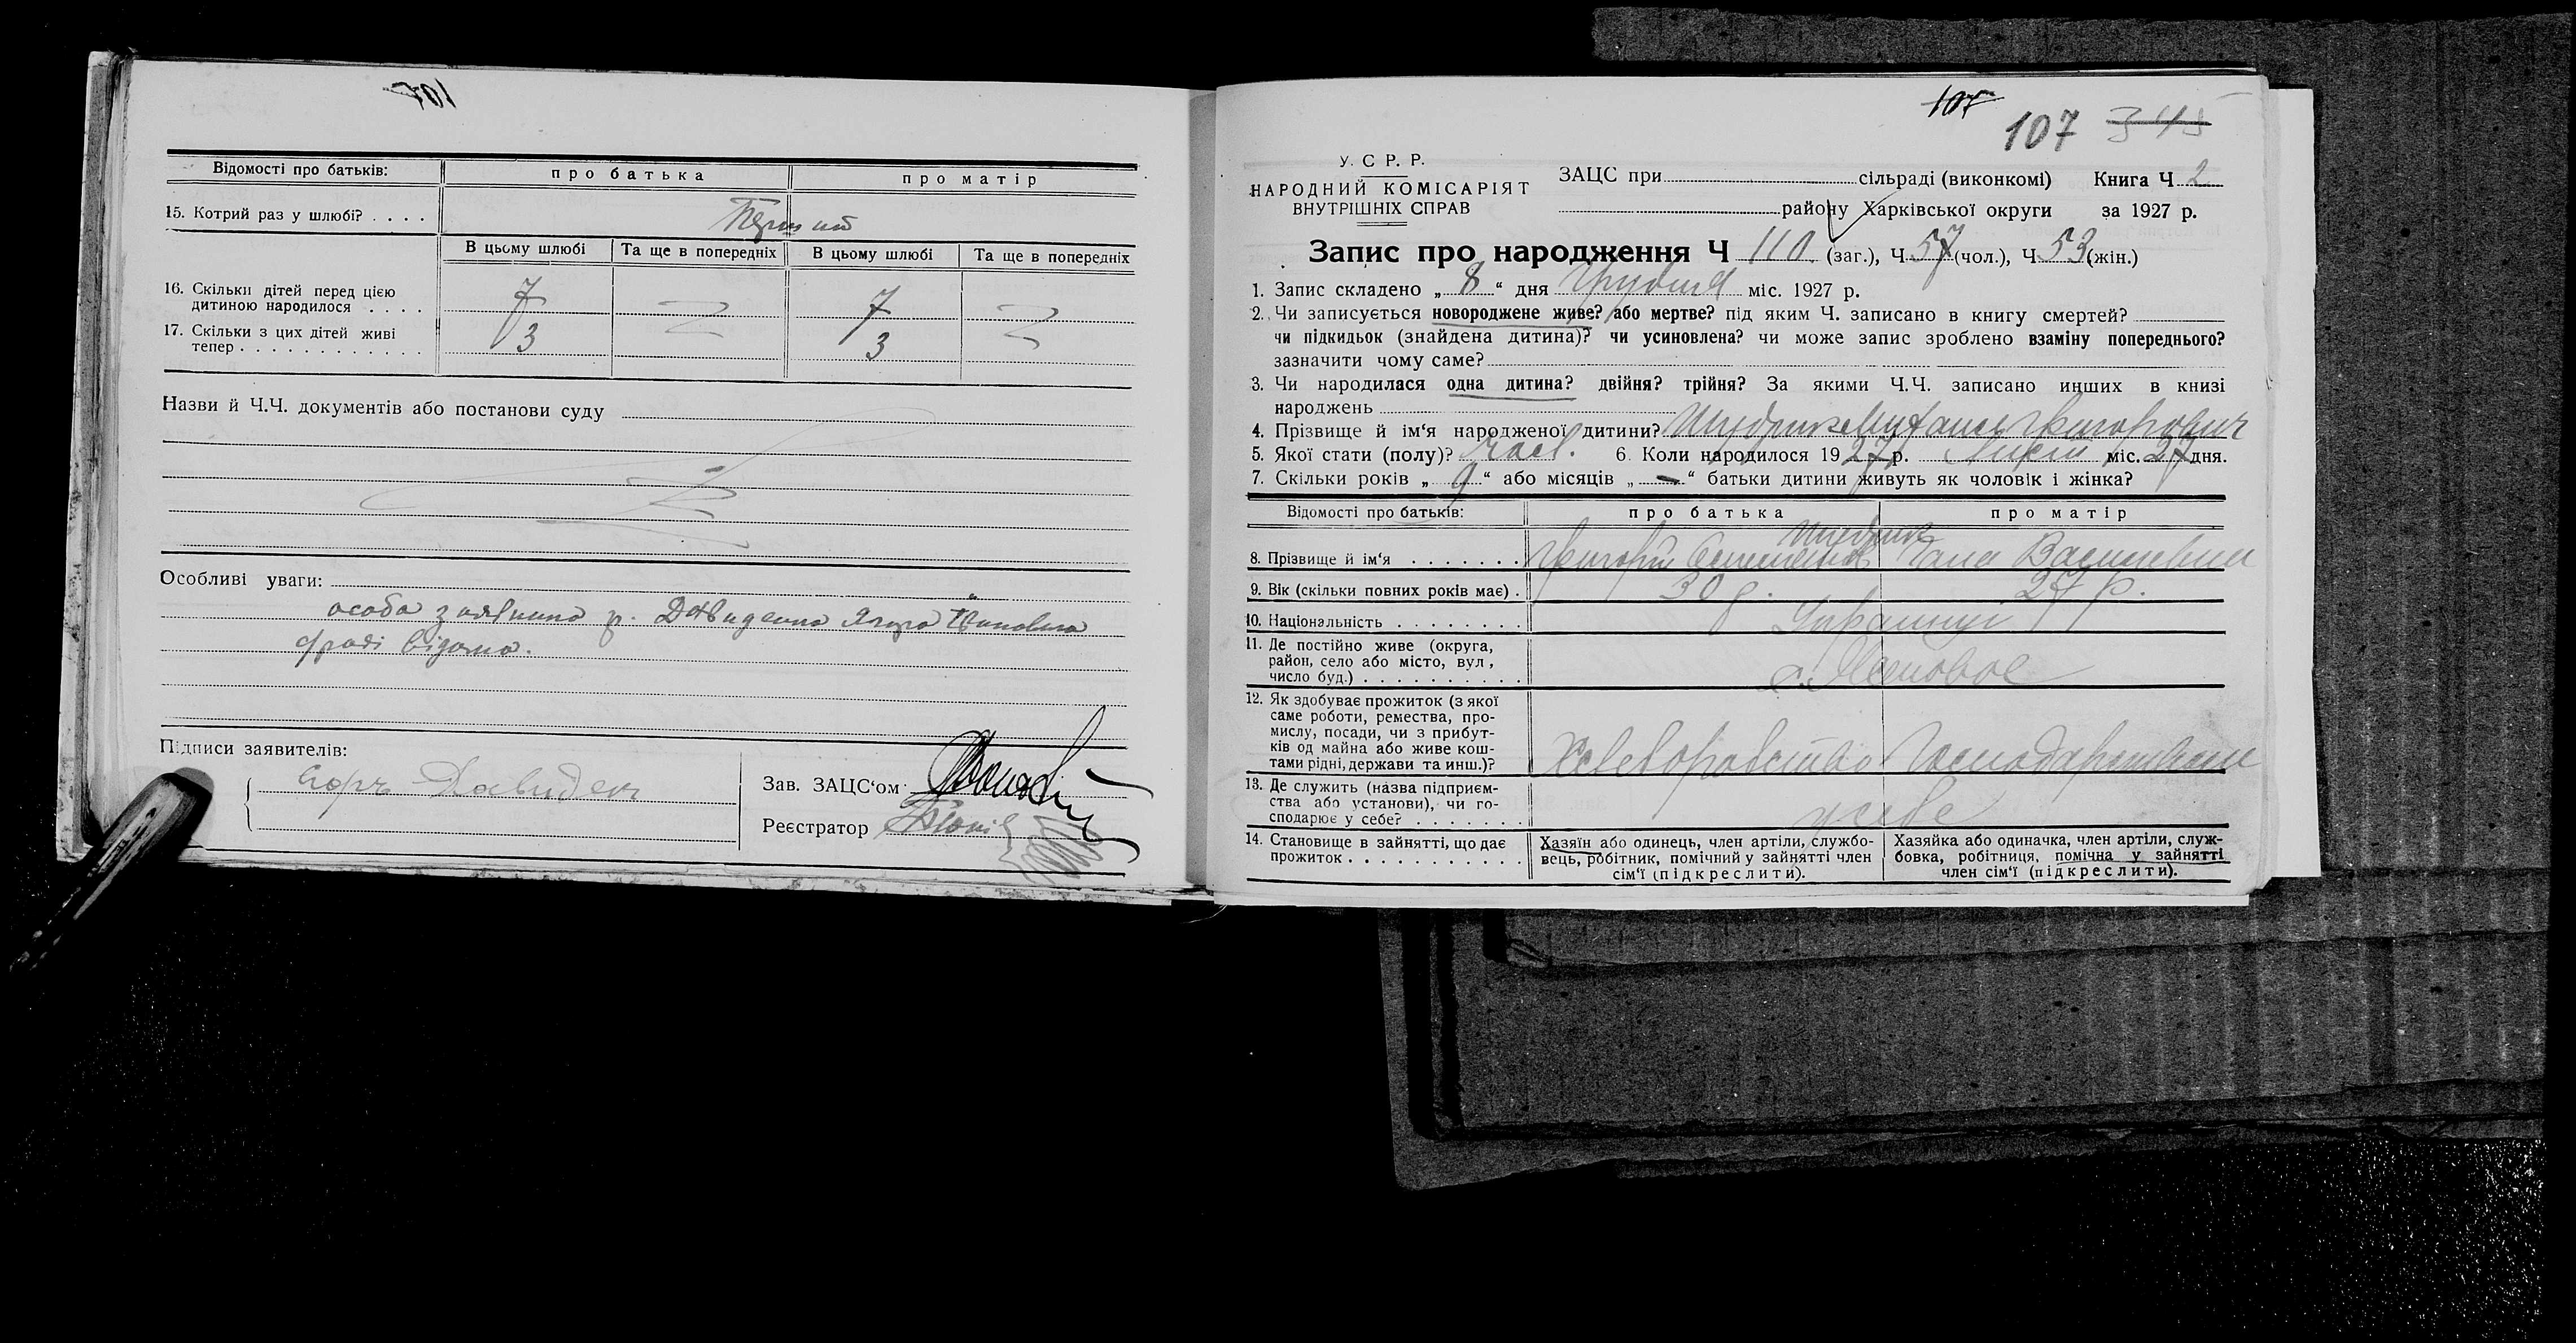 107
Відомості про батьків: про батька про матір
15. Котрий раз у шлюбі? . . . . Перший
В цьому шлюбі Та ще в попередніх В цьому шлюбі Та ще в попередніх
16. Скільки дітей перед цією
дитиною народилося . . . . 7 7
17. Скільки з цих дітей живі
тепер . . . . . . . . . . . . . 3 3
Назви й Ч.Ч. документів або постанови суду
Особливі уваги:
особа заявника гр. Давиденко Ягора Івановича
с/раді відома.
Підписи заявителів:
Егоръ Давиден
Зав. ЗАЦС‘ом
Реєстратор
107
107 345
У. С Р. Р.
НАРОДНИЙ КОМІСАРІЯТ
ВНУТРІШНІХ СПРАВ
ЗАЦС при сільраді (виконкомі) Книга Ч 2
району Харківської округи за 1927 р.
Запис про народження Ч 110 (заг.), Ч 57 (чол.), Ч 53 (жін.)
1. Запис складено „ 8 “ дня Грудня міс. 1927 р.
2. Чи записується новороджене живе? або мертве? під яким Ч. записано в книгу смертей?
чи підкидьок (знайдена дитина)? чи усиновлена? чи може запис зроблено взаміну попереднього?
зазначити чому саме?
3. Чи народилася одна дитина? двійня? трійня? За якими Ч.Ч. записано инших в книзі
народжень
4. Прізвище й ім‘я народженої дитини? Григорович
5. Якої стати (полу)? 6. Коли народилося 1927 р. міс. 27 дня.
7. Скільки років „ 9 “ або місяців „ - “ батьки дитини живуть як чоловік і жінка?
Відомості про батьків: про батька про матір
8. Прізвище й ім‘я . . . . . . . Григорій Василевна
9. Вік (скільки повних років має) . 30 р. 27 р.
10. Національність . . . . . . . . Українці
11. Де постійно живе (округа,
район, село або місто, вул,
число буд.) . . . . . . . . . .
12. Як здобуває прожиток (з якої
саме роботи, ремества, про-
мислу, посади, чи з прибут-
ків од майна або живе кош-
тами рідні, держави та инш.)? Хлеборобство
13. Де служить (назва підприєм-
ства або установи), чи го-
сподарює у себе? . . . . . . . у себе
14. Становище в зайнятті, що дає
прожиток . . . . . . . . . . .
Хазяїн або одинець, член артіли, службо-
вець, робітник, помічний у зайнятті член
сім‘ї (підкреслити).
Хазяйка або одиначка, член артіли, служ-
бовка, робітниця, помічна у зайнятті
член сім‘ї (підкреслити).